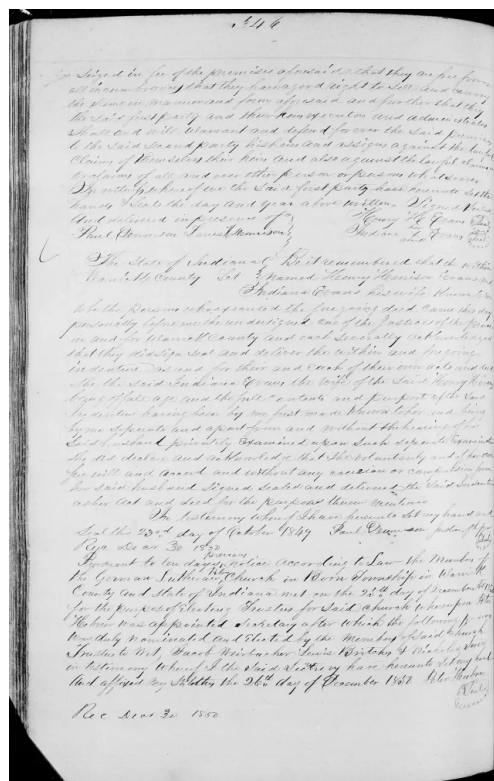 346
Seized in fee of the premises aforesaid that they are free from
all incumbrances that they have good right to Sell and convey
the same in manner and form aforesaid and further that they
the said first party and their heirs executors and administrators
Shall and will Warrant and defend forever the said premises
to the said second party his heirs and assigns against the lawful
Claims of themselves their heirs and also against the lawful claims
of all and ever other person or persons whatsoever
In witness whereof we the Said first party have hereunto Set their
hands & Seals the day and year above written Signed Sealed
And delivered in presence of Henry H Evans Seal
Paul Dennison Indiana Evans
The State of Indiana Be it remembered that the within
County Sct named Henry Harrison Evans and
Indiana Evans his wife
who the persons who executed the foregoing deed came this day
personally before me the undersigned one of the Justices of the peace
in and for Warrick County and each severally acknowledged
that they did sign seal and deliver the within and foregoing
indenture as and for their and each of their own acts and deed
And the said Indiana Evans the wife of the Said Henry H Evans
being of full age and the full Contents and purport of the Said
Indenture having been by me first made known to her and being
by me Seperate and apart from and without the hearing of her
Said husband privately Examined upon Such Seperate Examination
did declare and acknowledge that She voluntarily and of her own
free will and accord and without any coercion or compulsion from
her said husband Signed Sealed and delivered the Said Indenture
as her Act and deed for the purposes therein mentioned
In testimony whereof I have hereunto set my hand and
Seal this 23rd day of October 1849 Paul Dennison Justice of the peace
Rec Decr 30 1850
Pursuant to ten days previous notice According to Law the Members of
the German Lutheran Church in Boon Township in Warrick
County and State of Indiana met on the 25th day of December
for the purpose of Electing Trustees for Said Church whereupon Peter
was appointed Secretary after which the following persons
was duly nominated and Elected by the Members of Said Church
Trustees Jacob Lewis &
in testimony whereof I the Said Secretary have hereunto Set my hand
And affixed my Seal this the 26th day of December 1850 Peter
Rec Decr 30 1850